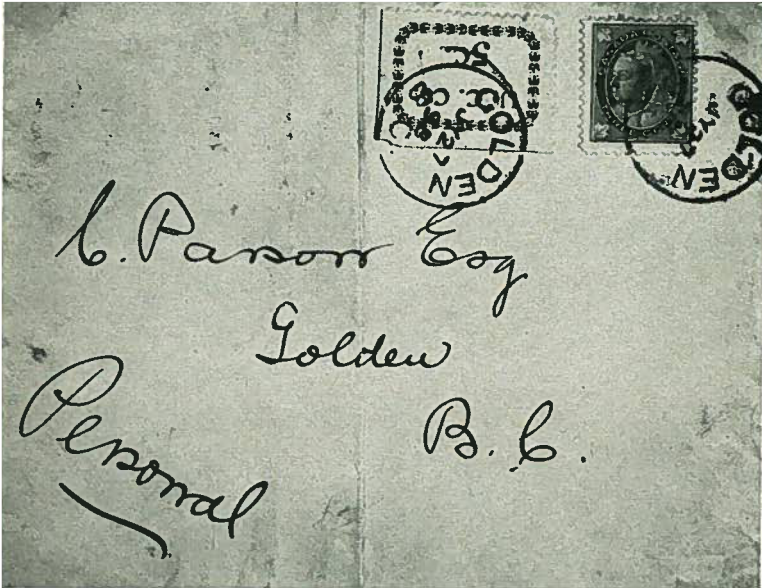 5c
GOLDEN
GOLDEN
C. Parson Esq
Golden
B. C.
Personal